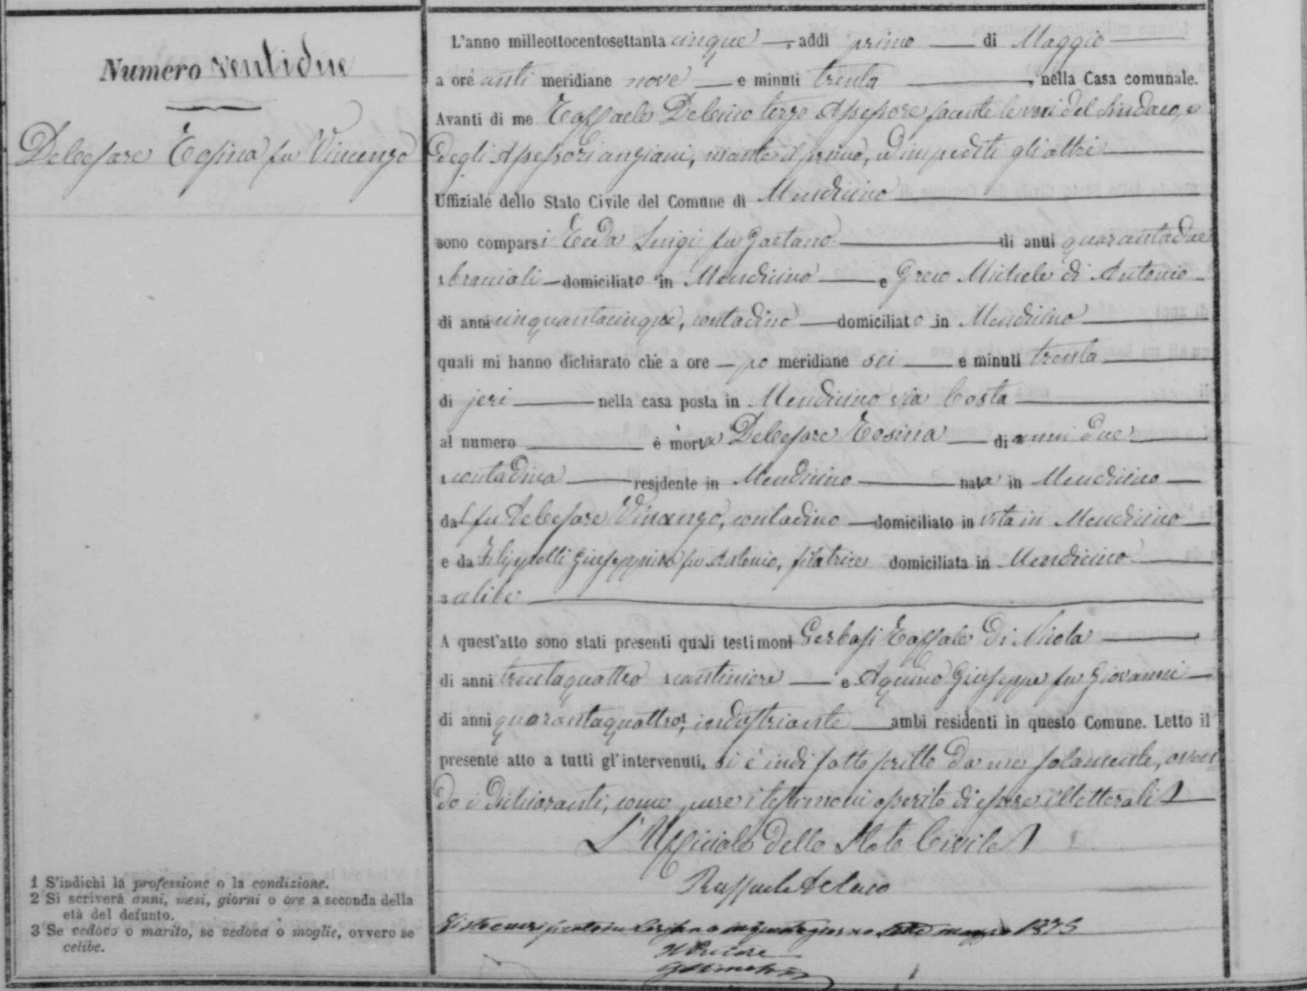 Numero ventidue
Delcesare Rosina fu Vincenzo
L'anno milleottocentosettanta cinque, addì primo di Maggio
a ore anti meridiane nove e minuti trenta, nella Casa comunale.
Avanti di me Raffaele Deluco terzo Assessore facente le veci del Sindaco, e
degli Assessori anziani, morto il primo, ed impediti gli altri
Uffiziale dello Stato Civile del Comune di Mendicino
sono comparsi Reda Luigi fu Gaetano di anni quarantadue
bracciali domiciliato in Mendicino e Greco Michele di Antonio
di anni cinquantacinque, contadino domiciliato in Mendicino
quali mi hanno dichiarato che a ore po meridiane sei e minuti trenta
di jeri nella casa posta in Mendicino via Costa
al numero è morta Delcesare Rosina di anni due
1 contadina residente in Mendicino nata in Mendicino
dal fu Delcesare Vincenzo, contadino domiciliato in vita in Mendicino
e da Filippelli Giuseppina fu Antonio, filatrice domiciliata in Mendicino
3 celibe
A quest'atto sono stati presenti quali testimoni Gerbasi Raffaele di Nicola
di anni trentaquattro cantiniere e Aquino Giuseppe fu Giovanni
di anni quarantaquattro, industriante ambi residenti in questo Comune. Letto il
presente atto a tutti gl'intervenuti, si è indi sottoscritto da me solamente, aven
do i dichiaranti, come pure i testimoni asserito di essere illetterati
L'Ufficiale dello Stato Civile
Raffaele Deluco
1875
Il Pretore
1 S'indichi la professione o la condizione.
2 Si scriverà anni, mesi, giorni o ore a seconda della
età del defunto.
3 Se vedovo o marito, se vedova o moglie, ovvero se
celibe.